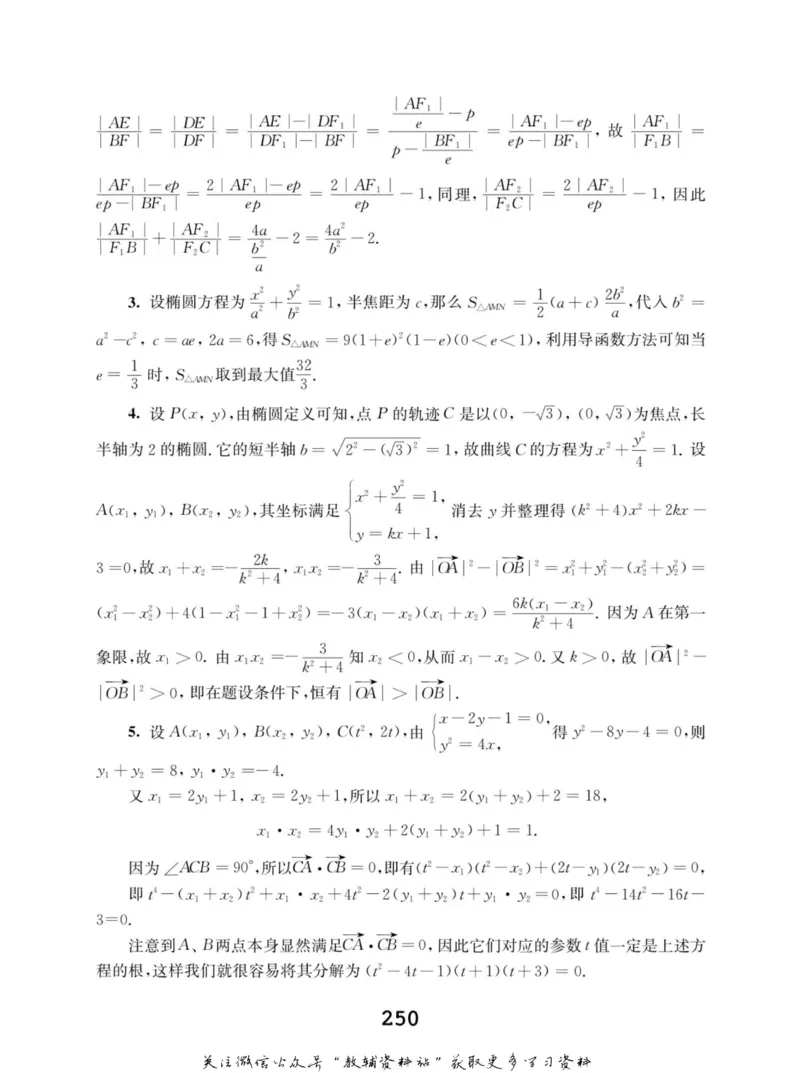 $\frac{|AE|}{|BF|}=\frac{|DE|}{|DF|}=\frac{|AE|-|DF_1|}{|DF_1|-|BF|}=\frac{\frac{|AF_1|}{e}-p}{p-\frac{|BF_1|}{e}}=\frac{|AF_1|-ep}{ep-|BF_1|}$, 故 $\frac{|AF_1|}{|F_1B|}=$
$\frac{|AF_1|-ep}{ep-|BF_1|}=\frac{2|AF_1|-ep}{ep}=\frac{2|AF_1|}{ep}-1$, 同理, $\frac{|AF_2|}{|F_2C|}=\frac{2|AF_2|}{ep}-1$, 因此
$\frac{|AF_1|}{|F_1B|}+\frac{|AF_2|}{|F_2C|}=\frac{4a}{\frac{b^2}{a}}-2=\frac{4a^2}{b^2}-2$.
3. 设椭圆方程为 $\frac{x^2}{a^2}+\frac{y^2}{b^2}=1$, 半焦距为 c,那么 $S_{\triangle AMN}=\frac{1}{2}(a+c)\frac{2b^2}{a}$,代入 $b^2=$
$a^2-c^2$, $c=ae$, $2a=6$,得 $S_{\triangle AMN}=9(1+e)^2(1-e)(0<e<1)$, 利用导函数方法可知当
$e=\frac{1}{3}$ 时, $S_{\triangle AMN}$ 取到最大值 $\frac{32}{3}$.
4. 设 P(x, y),由椭圆定义可知,点 P 的轨迹 C 是以(0, $-\sqrt{3}$), (0, $\sqrt{3}$)为焦点,长
半轴为 2 的椭圆. 它的短半轴 $b=\sqrt{2^2-(\sqrt{3})^2}=1$, 故曲线 C 的方程为 $x^2+\frac{y^2}{4}=1$. 设
$A(x_1, y_1)$, $B(x_2, y_2)$,其坐标满足 $\begin{cases}x^2+\frac{y^2}{4}=1,\\y=kx+1,\end{cases}$ 消去 y 并整理得 $(k^2+4)x^2+2kx-$
$3=0$,故 $x_1+x_2=-\frac{2k}{k^2+4}$, $x_1x_2=-\frac{3}{k^2+4}$. 由 $|\overrightarrow{OA}|^2-|\overrightarrow{OB}|^2=x_1^2+y_1^2-(x_2^2+y_2^2)=$
$(x_1^2-x_2^2)+4(1-x_1^2-1+x_2^2)=-3(x_1-x_2)(x_1+x_2)=\frac{6k(x_1-x_2)}{k^2+4}$. 因为 A 在第一
象限,故 $x_1>0$. 由 $x_1x_2=-\frac{3}{k^2+4}$ 知 $x_2<0$,从而 $x_1-x_2>0$. 又 $k>0$, 故 $|\overrightarrow{OA}|^2-$
$|\overrightarrow{OB}|^2>0$, 即在题设条件下,恒有 $|\overrightarrow{OA}|>|\overrightarrow{OB}|$.
5. 设 $A(x_1, y_1)$, $B(x_2, y_2)$, $C(t^2, 2t)$,由 $\begin{cases}x-2y-1=0,\\y^2=4x,\end{cases}$ 得 $y^2-8y-4=0$,则
$y_1+y_2=8$, $y_1\cdot y_2=-4$.
又 $x_1=2y_1+1$, $x_2=2y_2+1$,所以 $x_1+x_2=2(y_1+y_2)+2=18$,
$x_1\cdot x_2=4y_1\cdot y_2+2(y_1+y_2)+1=1$.
因为 $\angle ACB=90°$,所以 $\overrightarrow{CA}\cdot\overrightarrow{CB}=0$,即有 $(t^2-x_1)(t^2-x_2)+(2t-y_1)(2t-y_2)=0$,
即 $t^4-(x_1+x_2)t^2+x_1\cdot x_2+4t^2-2(y_1+y_2)t+y_1\cdot y_2=0$,即 $t^4-14t^2-16t-$
3=0.
注意到 A、B 两点本身显然满足 $\overrightarrow{CA}\cdot\overrightarrow{CB}=0$, 因此它们对应的参数 t 值一定是上述方
程的根,这样我们就很容易将其分解为 $(t^2-4t-1)(t+1)(t+3)=0$.
250
关注微信公众号“教辅资料站”获取更多学习资料